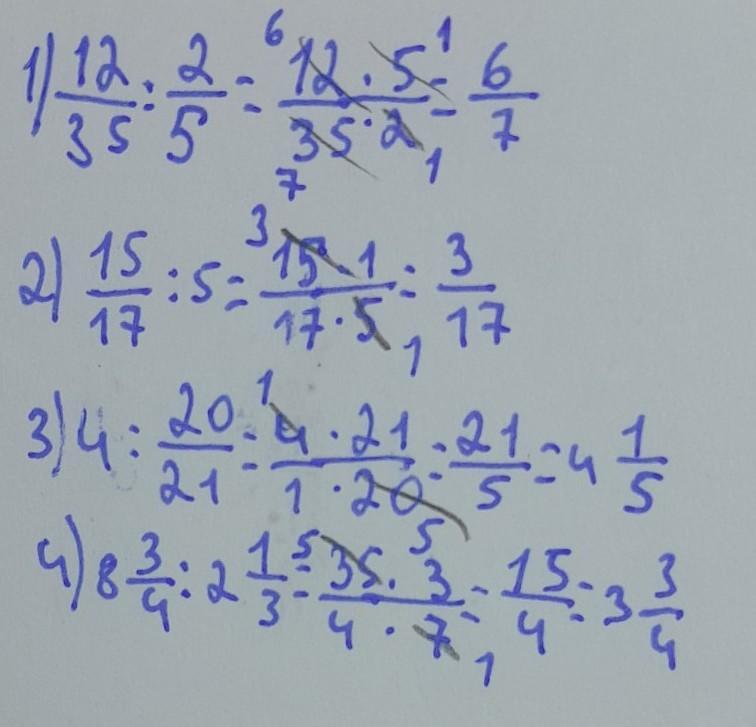 1) 12/35 : 2/5 = 12 · 5 / 35 · 2 = 6/7
2) 15/17 : 5 = 15 · 1 / 17 · 5 = 3/17
3) 4 : 20/21 = 4 · 21 / 1 · 20 = 21/5 = 4 1/5
4) 8 3/4 : 2 1/3 = 35 · 3 / 4 · 7 = 15/4 = 3 3/4